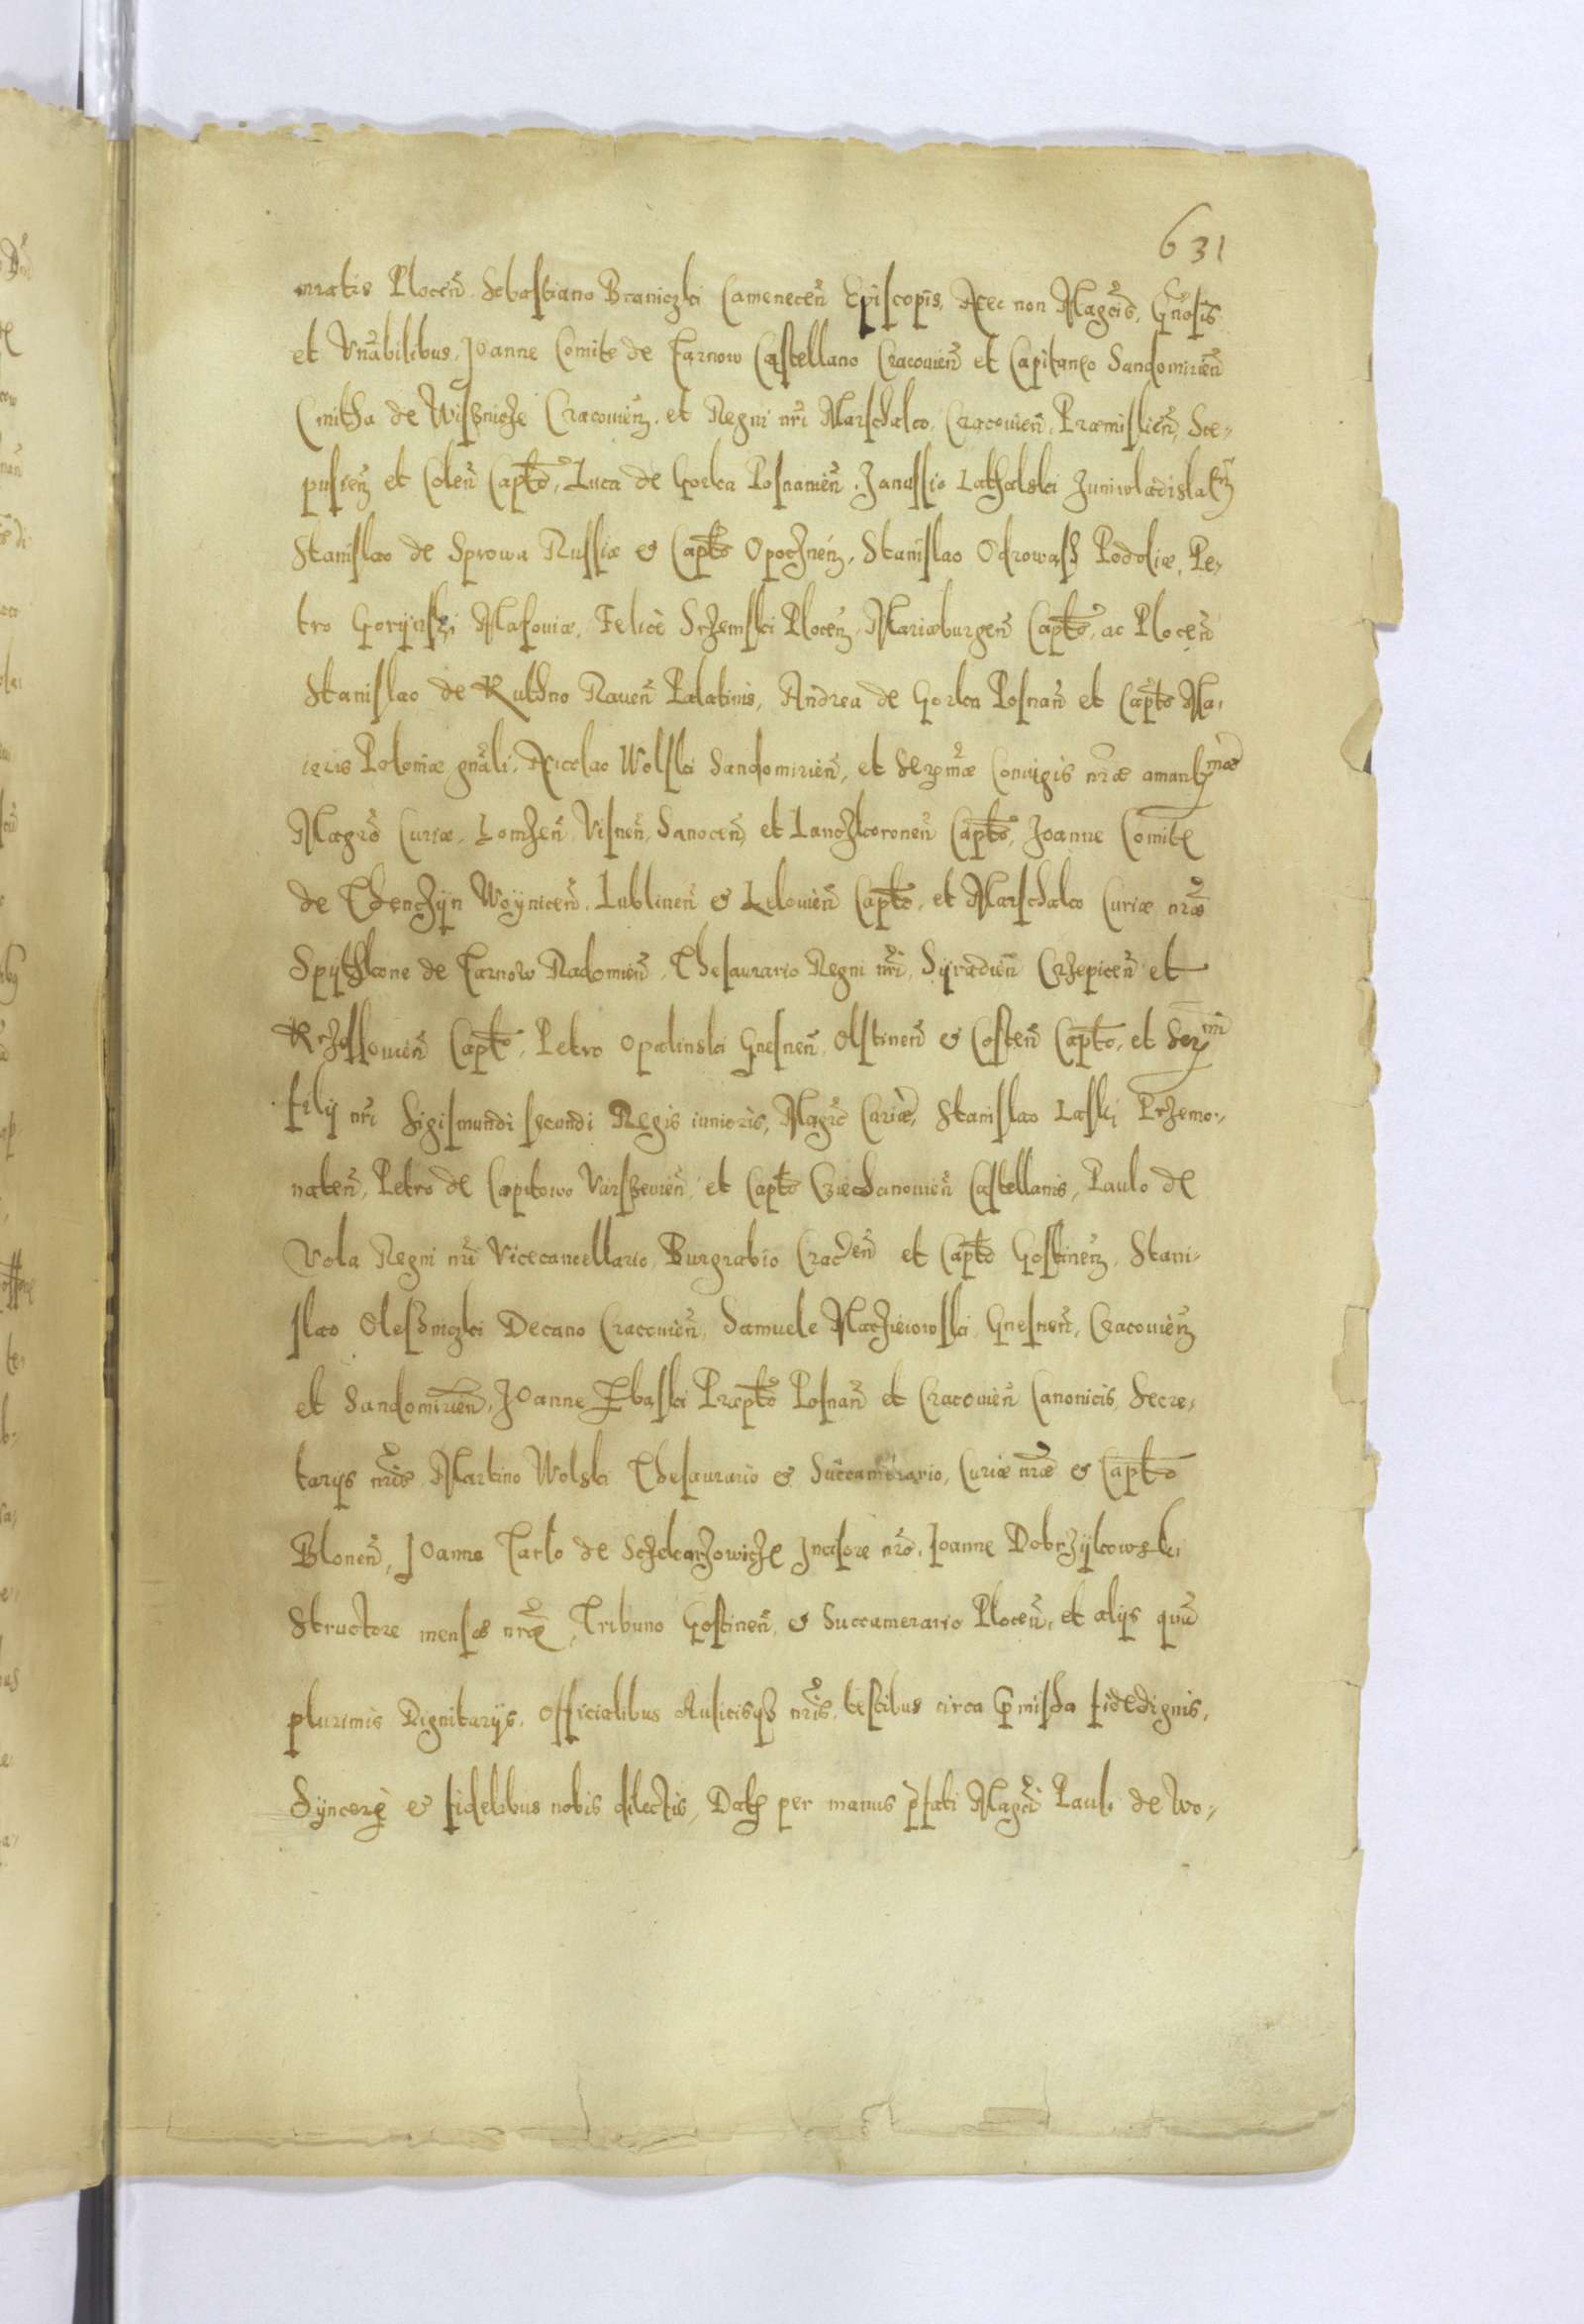 631
nratis Plocen̄. Sebastiano Braniczki Camenecen̄ Ep̄iscopis, Nec non Mag̅cis, Gn̄osis
et Vn̄abilibus, Joanne Comite de Tarnow Castellano Cracovien̄ et Capitaneo Sandomirien̄
Cmitha de Wisznicze Cracovien̄. et Regni nr̄i Marschalco, Cracovien̄, Præmislien̄, Sce-
pusien̄ et Colen̄ Capt̄o, Luca de Gorka Posnanien̄. Janussio Lathalski Juniwladislavien̄
Stanislao de Sprowa Russiæ & Capt̄o Opocznen̄, Stanislao Odrowasz Podoliæ, Pe-
tro Gorijnski Masoviæ, Felice Srzemski Plocen̄, Mariæburgen̄ Capt̄o, ac Plocen̄
Stanislao de Kuthno Raven̄ Palatinis, Andrea de Gorka Posnan̄ et Capt̄o Ma-
ioris Poloniæ gn̄ali, Nicolao Wolski Sandomirien̄, et Serm̄æ Coniugis nr̄æ amant̄mæ
Magr̄o Curiæ, Lomzen̄ Visnen̄, Sanocen̄, et Lanczkoronen̄ Capt̄o, Joanne Comite
de Thenczijn Woynicen̄. Lublinen̄ & Lelovien̄ Capt̄o, et Marschalco Curiæ nr̄æ
Spythkone de Tarnow Radomien̄, Thesaurario Regni nr̄i, Syradien̄ Crzepicen̄ et
Krzossovien̄ Capt̄o, Petro Opalinski Gnesnen̄, Olstinen̄ & Costen̄ Capt̄o, et Ser̄mi
filij nr̄i Sigismundi secundi Regis iunioris, Magr̄o Curiæ, Stanislao Laski Przeme-
naten̄, Petro de Capitowo Varszevien̄, et Capt̄o Cziechanovien̄ Castellanis, Paulo de
Vola Regni nr̄i Vicecancellario, Burgrabio Crac̄en̄ et Capt̄o Gostinen̄, Stani-
slao Oleszniczki Decano Cracovien̄, Samuele Macziewowski, Gnesnen̄, Cracovien̄
et Sandomirien̄, Joanne Zbaski Præpt̄o Posnan̄ et Cracovien̄ Canonicis, Secre-
tarijs nr̄is, Martino Wolski Thesaurario & Succamerario, Curiæ nr̄æ & Capt̄o
Blonen̄, Joanne Tarlo de Sczekarzowicze Incisore nr̄o, Joanne Dobrzijkowski
Structore mensæ nr̄æ, Tribuno Gostinen̄, & Succamerario Plocen̄, et alijs qua̅
plurimis Dignitarijs, Officialibus Aulicisq3 nr̄is, testibus circa p̄missa fidedignis,
Syncere & fidelibus nobis dilectis, Dat̄ per manus p̄fati Mag̅ci Pauli de Wo-